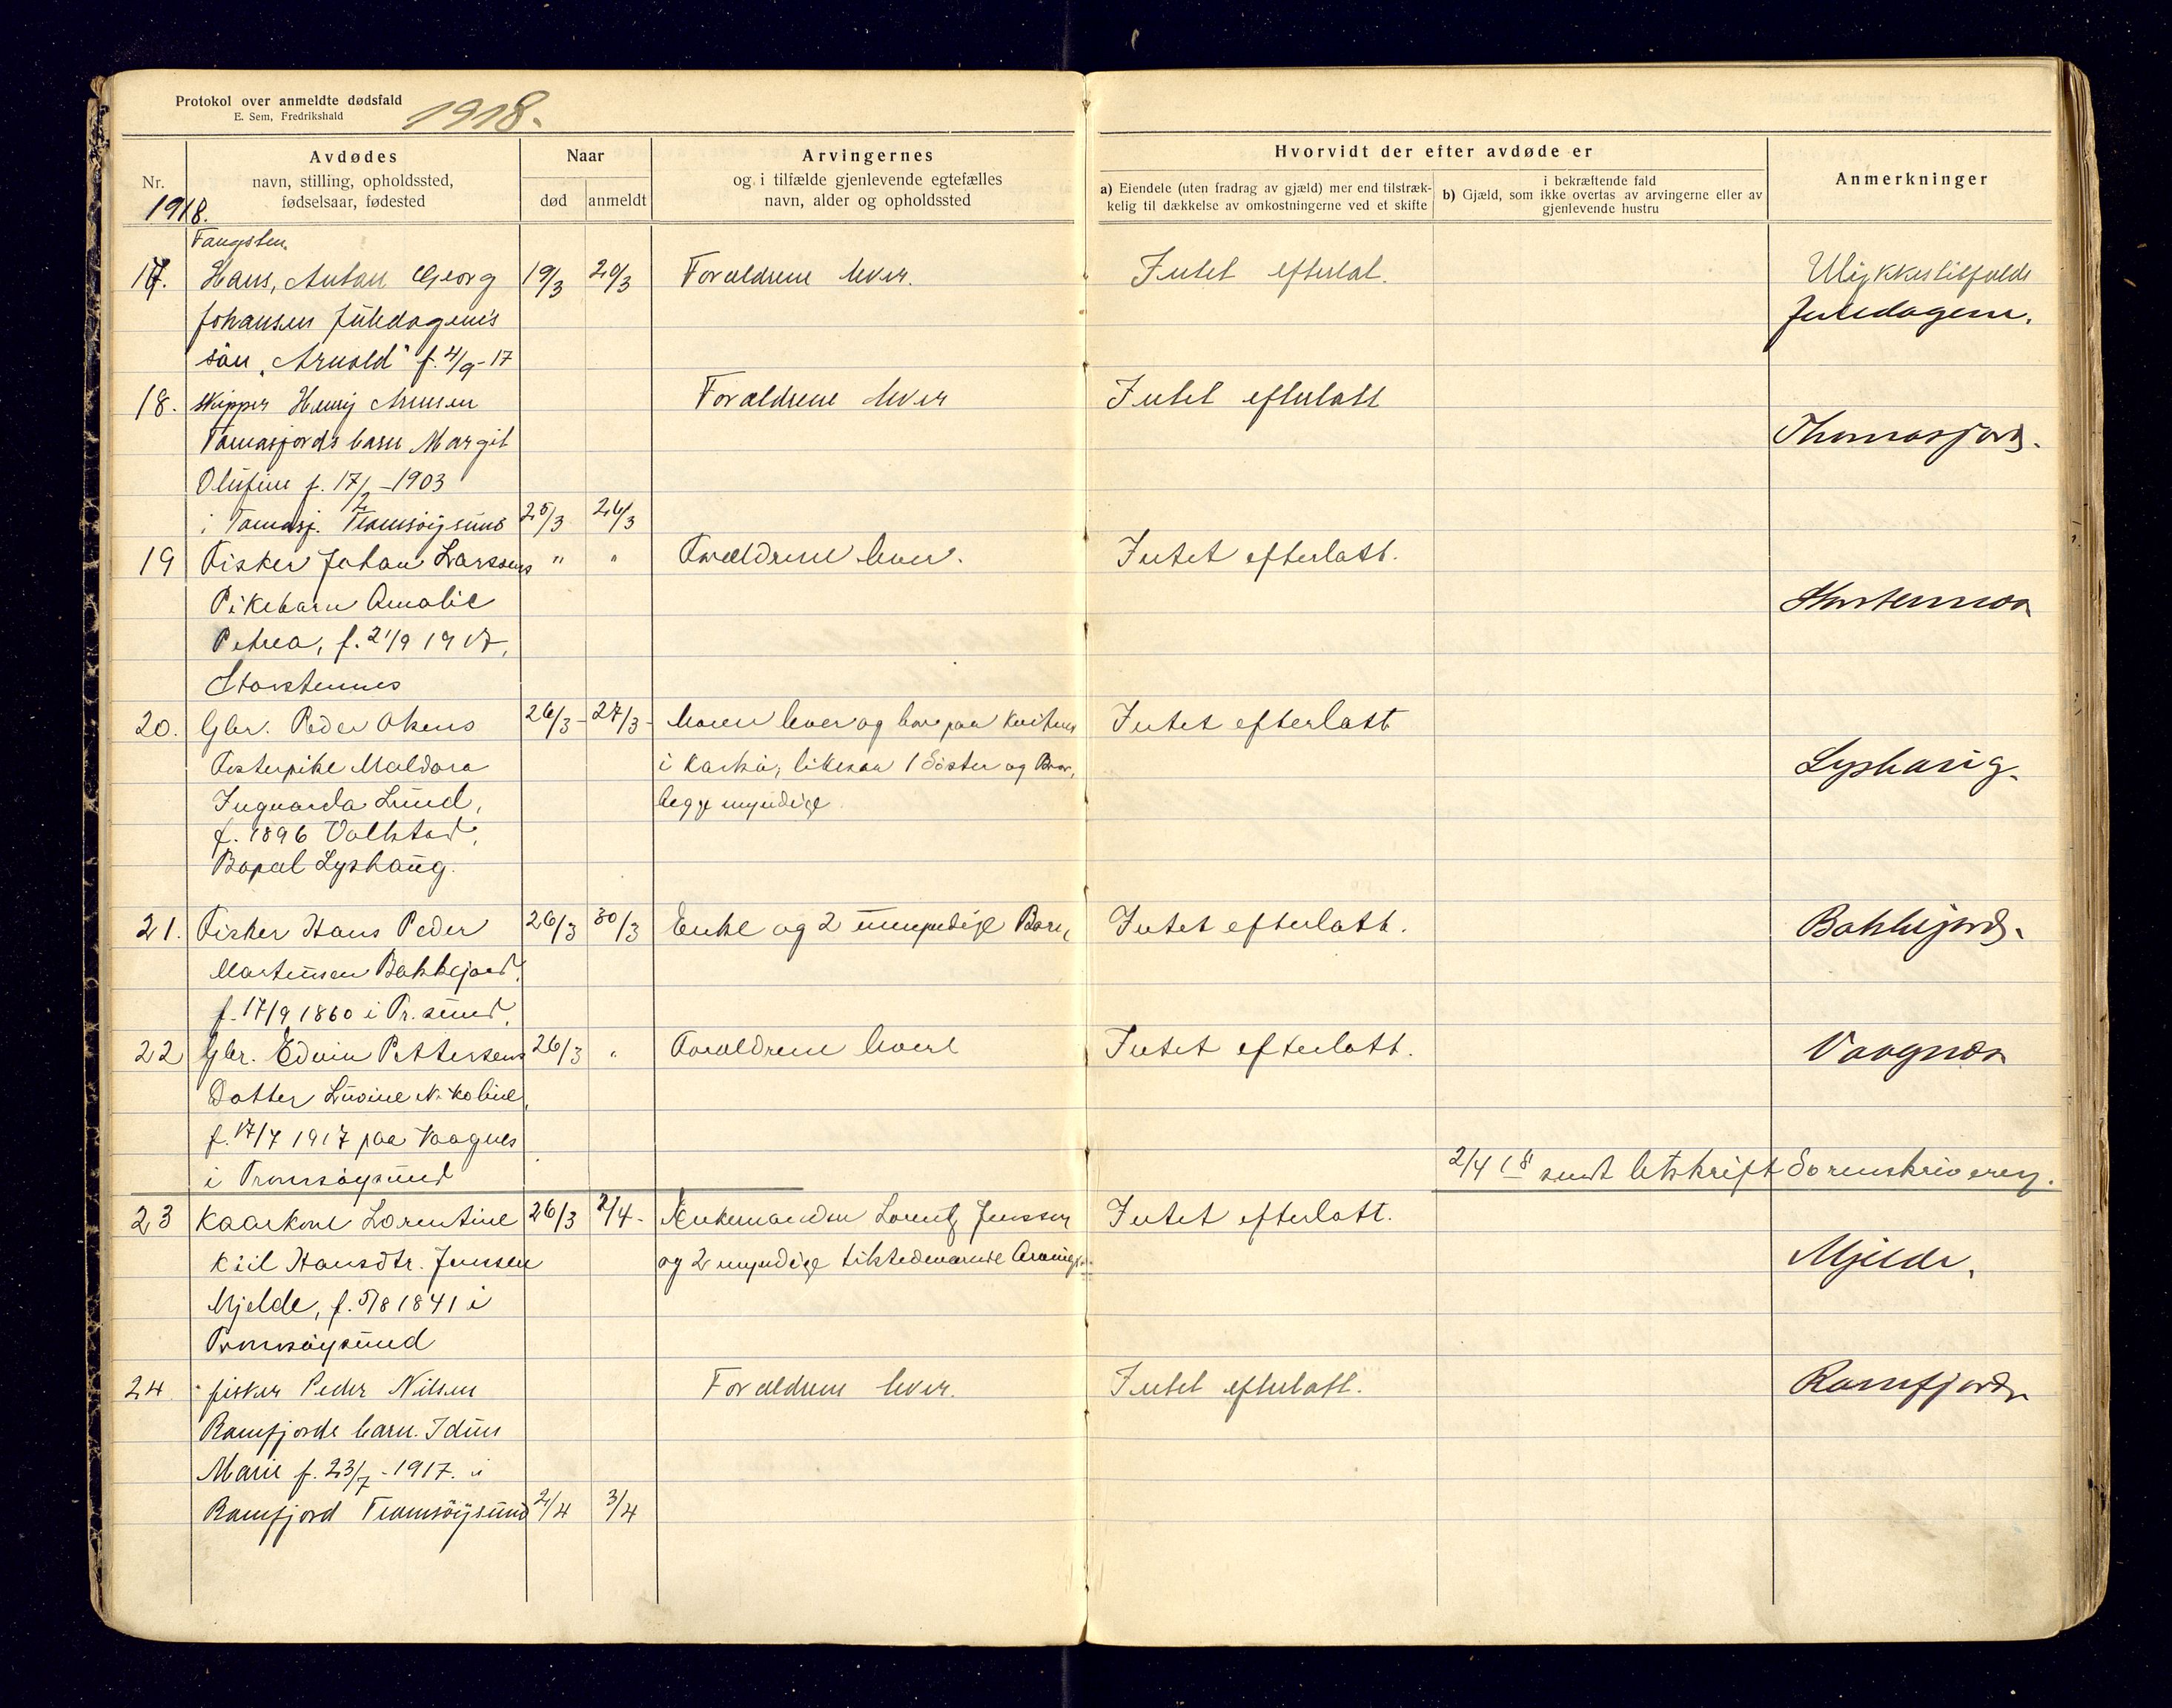 Protokol over anmeldte dødsfald
E. Sem, Fredrikshald
1918.
Nr.
1918.
Avdødes
navn, stilling, opholdssted,
fødselsaar, fødested
Naar
død
anmeldt
Arvingernes
og i tilfælde gjenlevende egtefælles
navn, alder og opholdssted
Hvorvidt der efter avdøde er
a) Eiendele (uten fradrag av gjæld) mer end tilstræk-
kelig til dækkelse av omkostningerne ved et skifte
i bekræftende fald
b) Gjæld, som ikke overtas av arvingerne eller av
gjenlevende hustru
Anmerkninger
Fangstm.
17. Hans, Anton Georg 19/3 20/3 Forældrene lever. Intet efterlat. Ulykkestilfælde
Johansen Juledagenes Juledagene.
søn "Arnold" f. 4/9-17
18. skipper Henry Arnsen Forældrene lever Intet efterlatt
Tomasjords barn Margit Thomasjord.
Olufine f. 17/2-1903
i Tomasj. Tromsøysund 25/3 26/3
19 Fisker Johan Larssens " " Forældrene lever. Intet efterlatt.
Pikebarn Amalie Storstennæs
Petrea, f. 21/9 1917,
Storstennes
20. Gbr. Peder Olsens 26/3- 27/3- Moren lever og bor paa Kvitnes Intet efterlatt
Fosterpike Maldora i Karlsö, likesaa 1 Söster og Bror, Lyshaug.
Ingvarda Lund, begge myndige.
f. 1896
Bopæl Lyshaug.
21. Fisker Hans Peder 26/3 30/3 Enke og 2 umyndige Barn, Intet efterlatt. Bakkejord.
Martinsen Bakkejord,
f. 17/9 1860 i Tr.sund.
22 Gbr. Edvin Pettersens 26/3 " Forældrene lever Intet efterlatt. Vaagnæs
Datter Lovine Nikoline,
f. 17/7 1917 paa Vaagnes
i Tromsöysund 2/4 18 sendt utskrift Sorenskriveren.
23 Kaarkone Lorentine 26/3 2/4- Enkemanden Lorentz Jenssen Intet efterlatt.
Kiil Hansdtr. Jenssen og 2 myndige tilstedeværende Arvinger Mjelde.
Mjelde, f. 5/8 1841 i
Tromsöysund
24. fisker Peder Nilsen Forældrene lever. Intet efterlatt. Ramfjordn
Ramfjords barn. Idun
Marie f. 23/7-1917. i
Ramfjord Tromsöysund 2/4 3/4